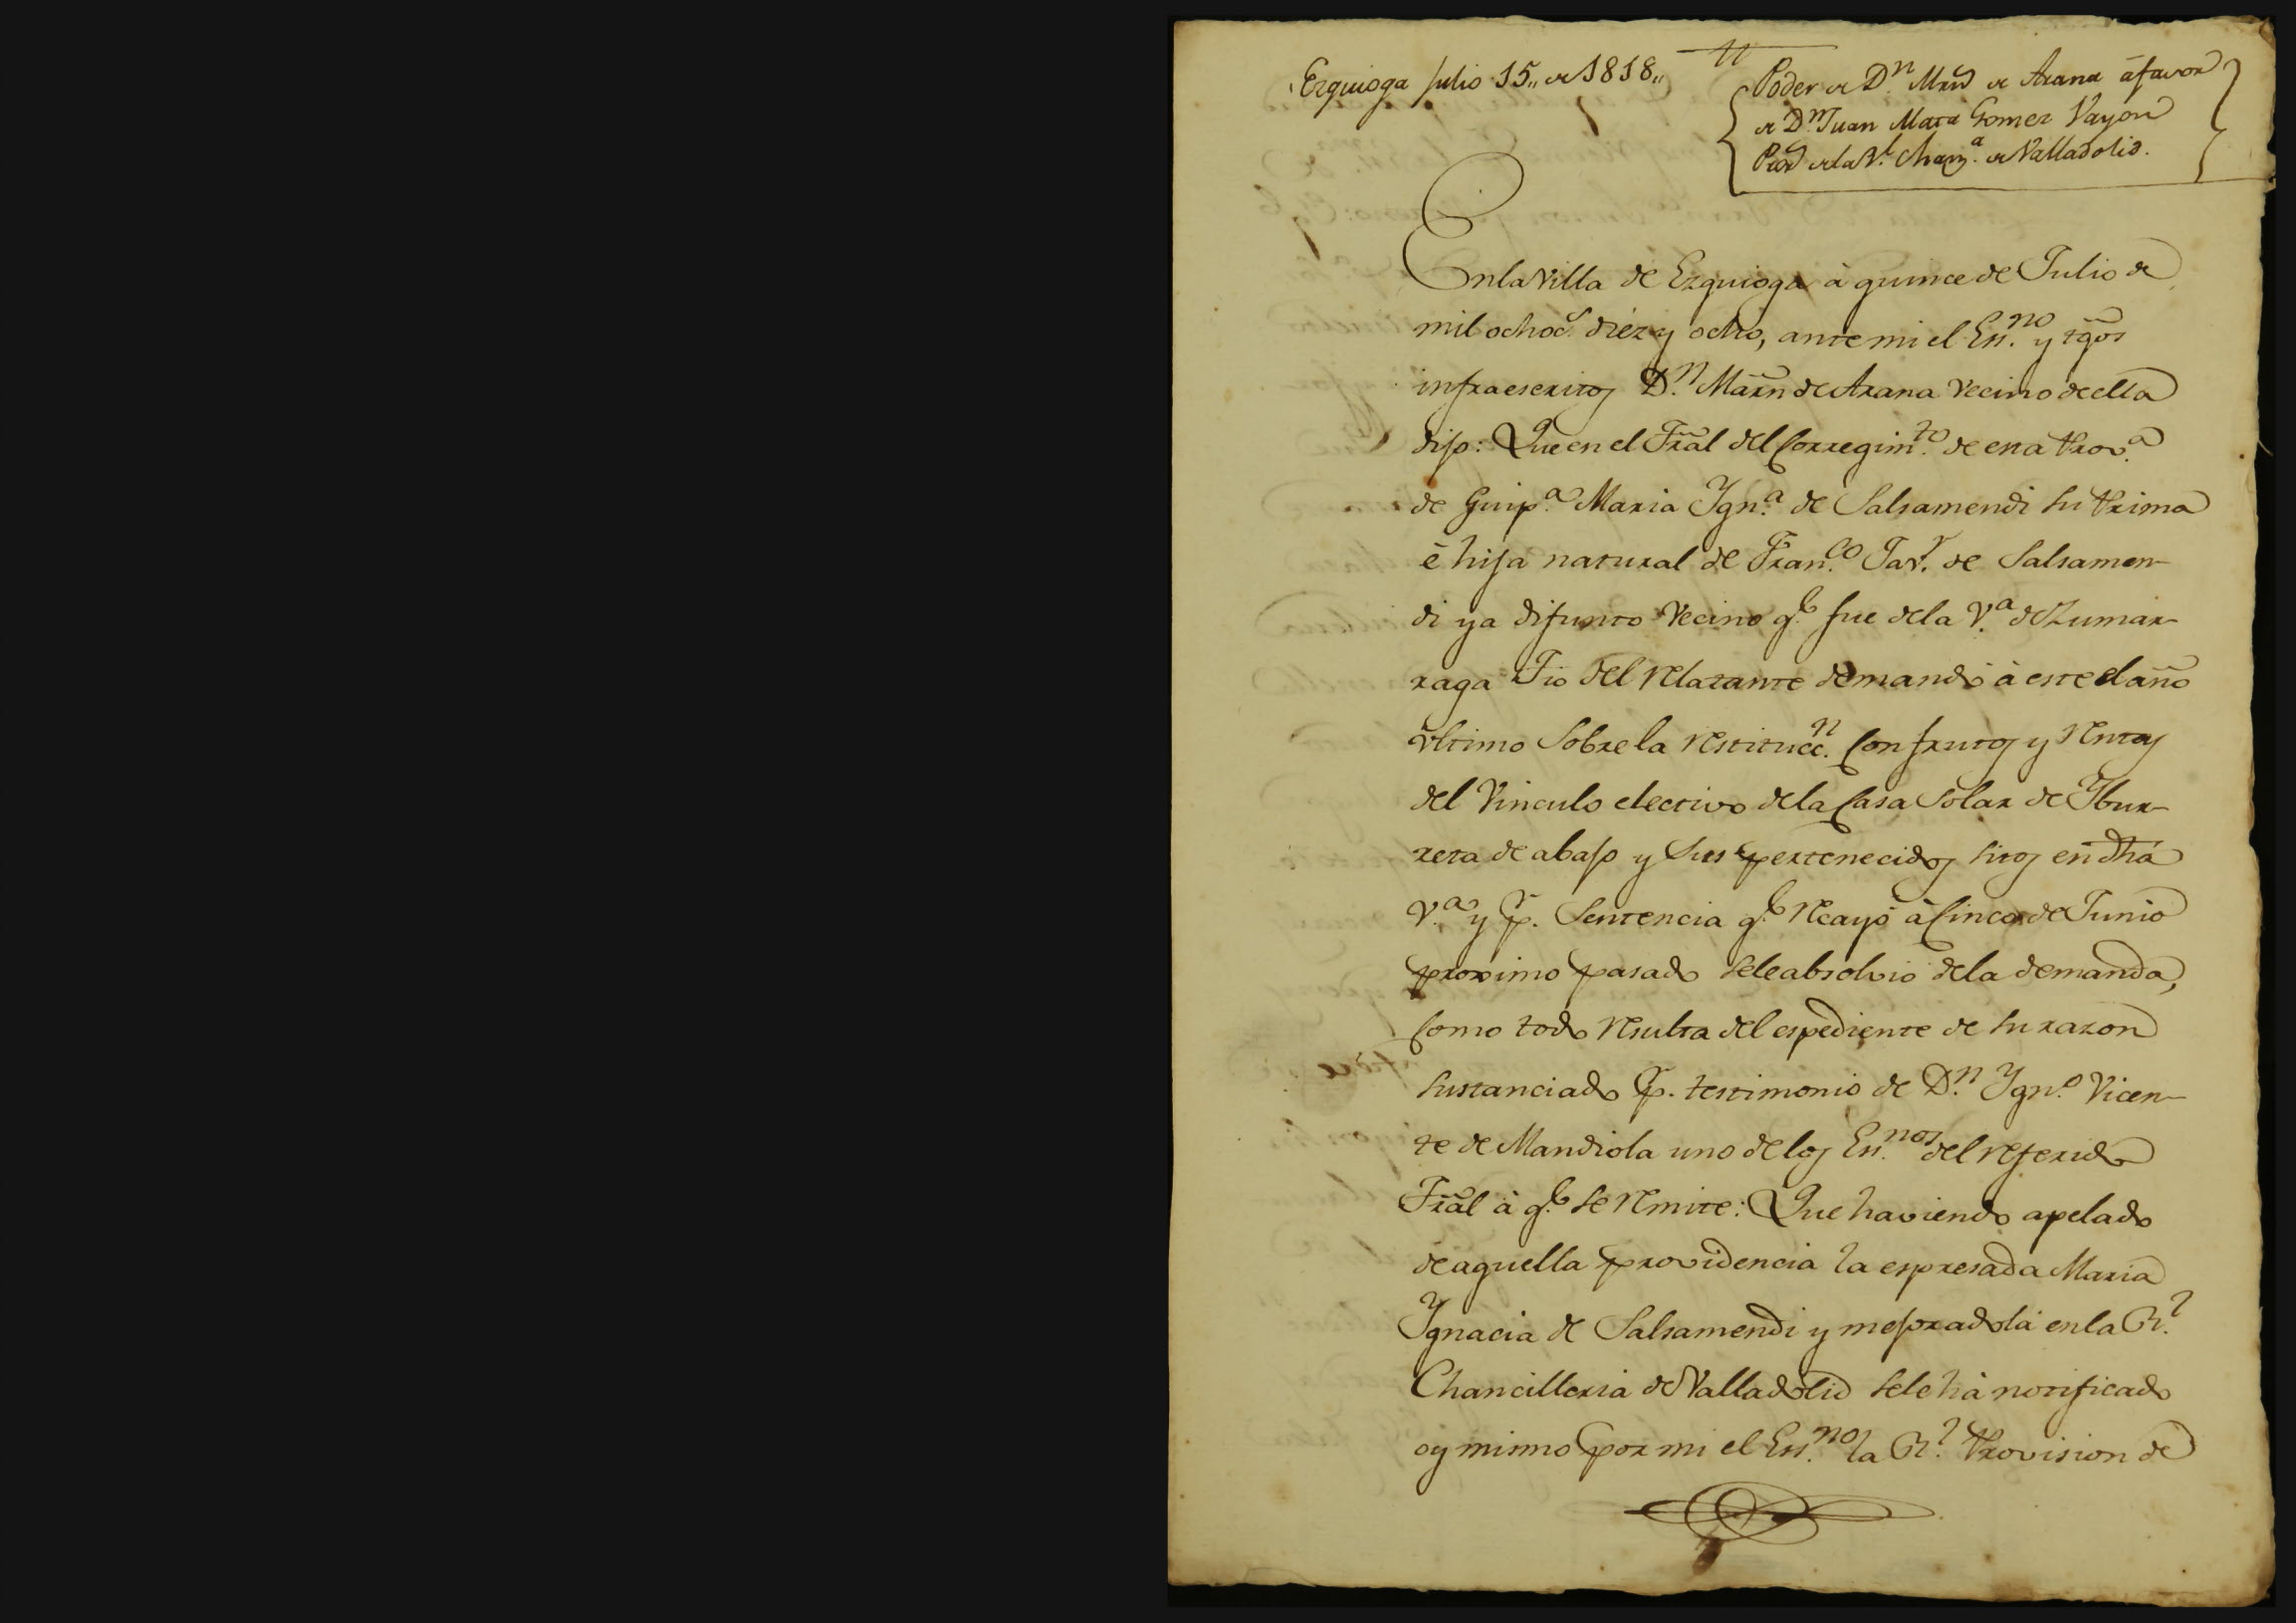 Ezquioga Julio 15,, de 1818,,
Poder de Dn. Mrn de Arana á favor
de Dn. Juan Mata Gomez Vayon
Pror de la Rl. Chanza. de Valladolid.
En la Villa de Ezquioga à quince de Julio de
mil ochocs. diéz y ocho, ante mi el Essno. y tgõs
infraescritos Dn. Marñ de Arana Vecino de ella
dijo: Que en el Trãl del Corregimto. de esta Prova.
de Guipa. Maria Ygna. de Salsamendi su Prima
è hija natural de Franco. Javr. de Salsamen-
di ya difunto Vecino qe. fue de la Va. de Zumar-
raga Tio del relatante demandó à este el año
ultimo sobre la restitucn. con frutos y rentas
del Vinculo electivo de la Casa Solar de Ybur-
reta de abajo y sus pertenecidos sitos en dhã
Va. y pr. Sentencia qe. recayó à cinco de Junio
proximo pasado se le absolvió de la demanda,
como todo resulta del espediente de su razon
sustanciado pr. testimonio de Dn. Ygno. Vicen-
te de Mandiola uno de los Essnos. del referido
Trãl à qe. se remite: Que haviendo apelado
de aquella providencia la espresada Maria
Ygnacia de Salsamendi y mejoradola en la Rl.
Chancilleria de Valladolid se le hà notificado
oy mismo por mi el Essno. la Rl. Provision de